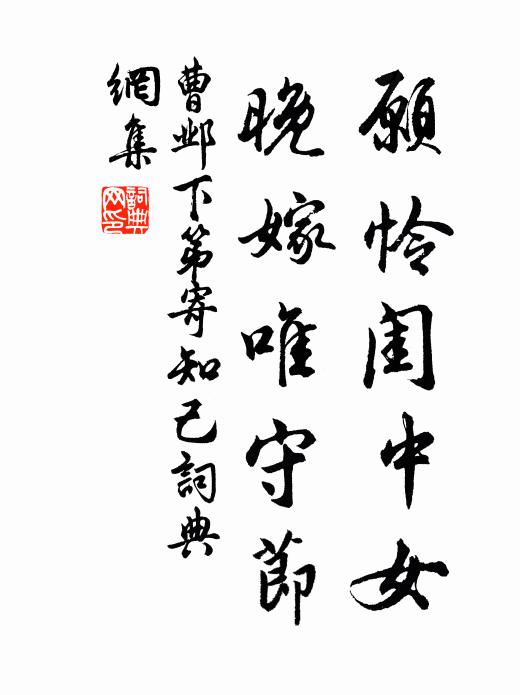 願怜閨中女
晚嫁唯守節
曹邺下第寄知己詞典
網集
詞典
网印